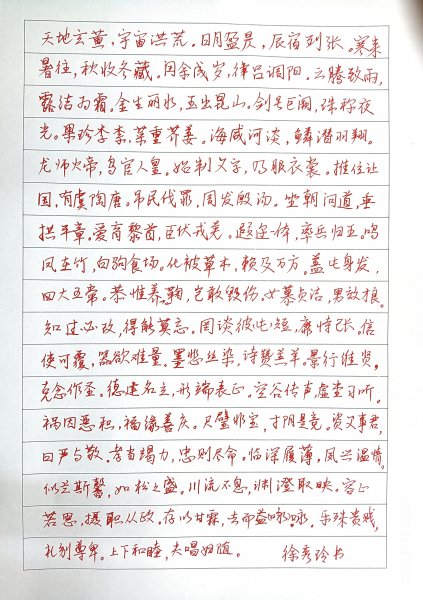 天地玄黄,宇宙洪荒。日月盈昃,辰宿列张。寒来
暑往,秋收冬藏。闰余成岁,律吕调阳。云腾致雨,
露结为霜。金生丽水,玉出昆山。剑号巨阙,珠称夜
光。果珍李柰,菜重芥姜。海咸河淡,鳞潜羽翔。
龙师火帝,鸟官人皇。始制文字,乃服衣裳。推位让
国,有虞陶唐。吊民伐罪,周发殷汤。坐朝问道,垂
拱平章。爱育黎首,臣伏戎羌。遐迩一体,率宾归王。鸣
凤在竹,白驹食场。化被草木,赖及万方。盖此身发,
四大五常。恭惟鞠养,岂敢毁伤。女慕贞洁,男效才良。
知过必改,得能莫忘。罔谈彼短,靡恃己长。信
使可覆,器欲难量。墨悲丝染,诗赞羔羊。景行维贤,
克念作圣。德建名立,形端表正。空谷传声,虚堂习听。
祸因恶积,福缘善庆。尺璧非宝,寸阴是竞。资父事君,
曰严与敬。孝当竭力,忠则尽命。临深履薄,夙兴温凊。
似兰斯馨,如松之盛。川流不息,渊澄取映。容止
若思,摄职从政。存以甘棠,去而益咏。乐殊贵贱,
礼别尊卑。上下和睦,夫唱妇随。 徐秀玲书